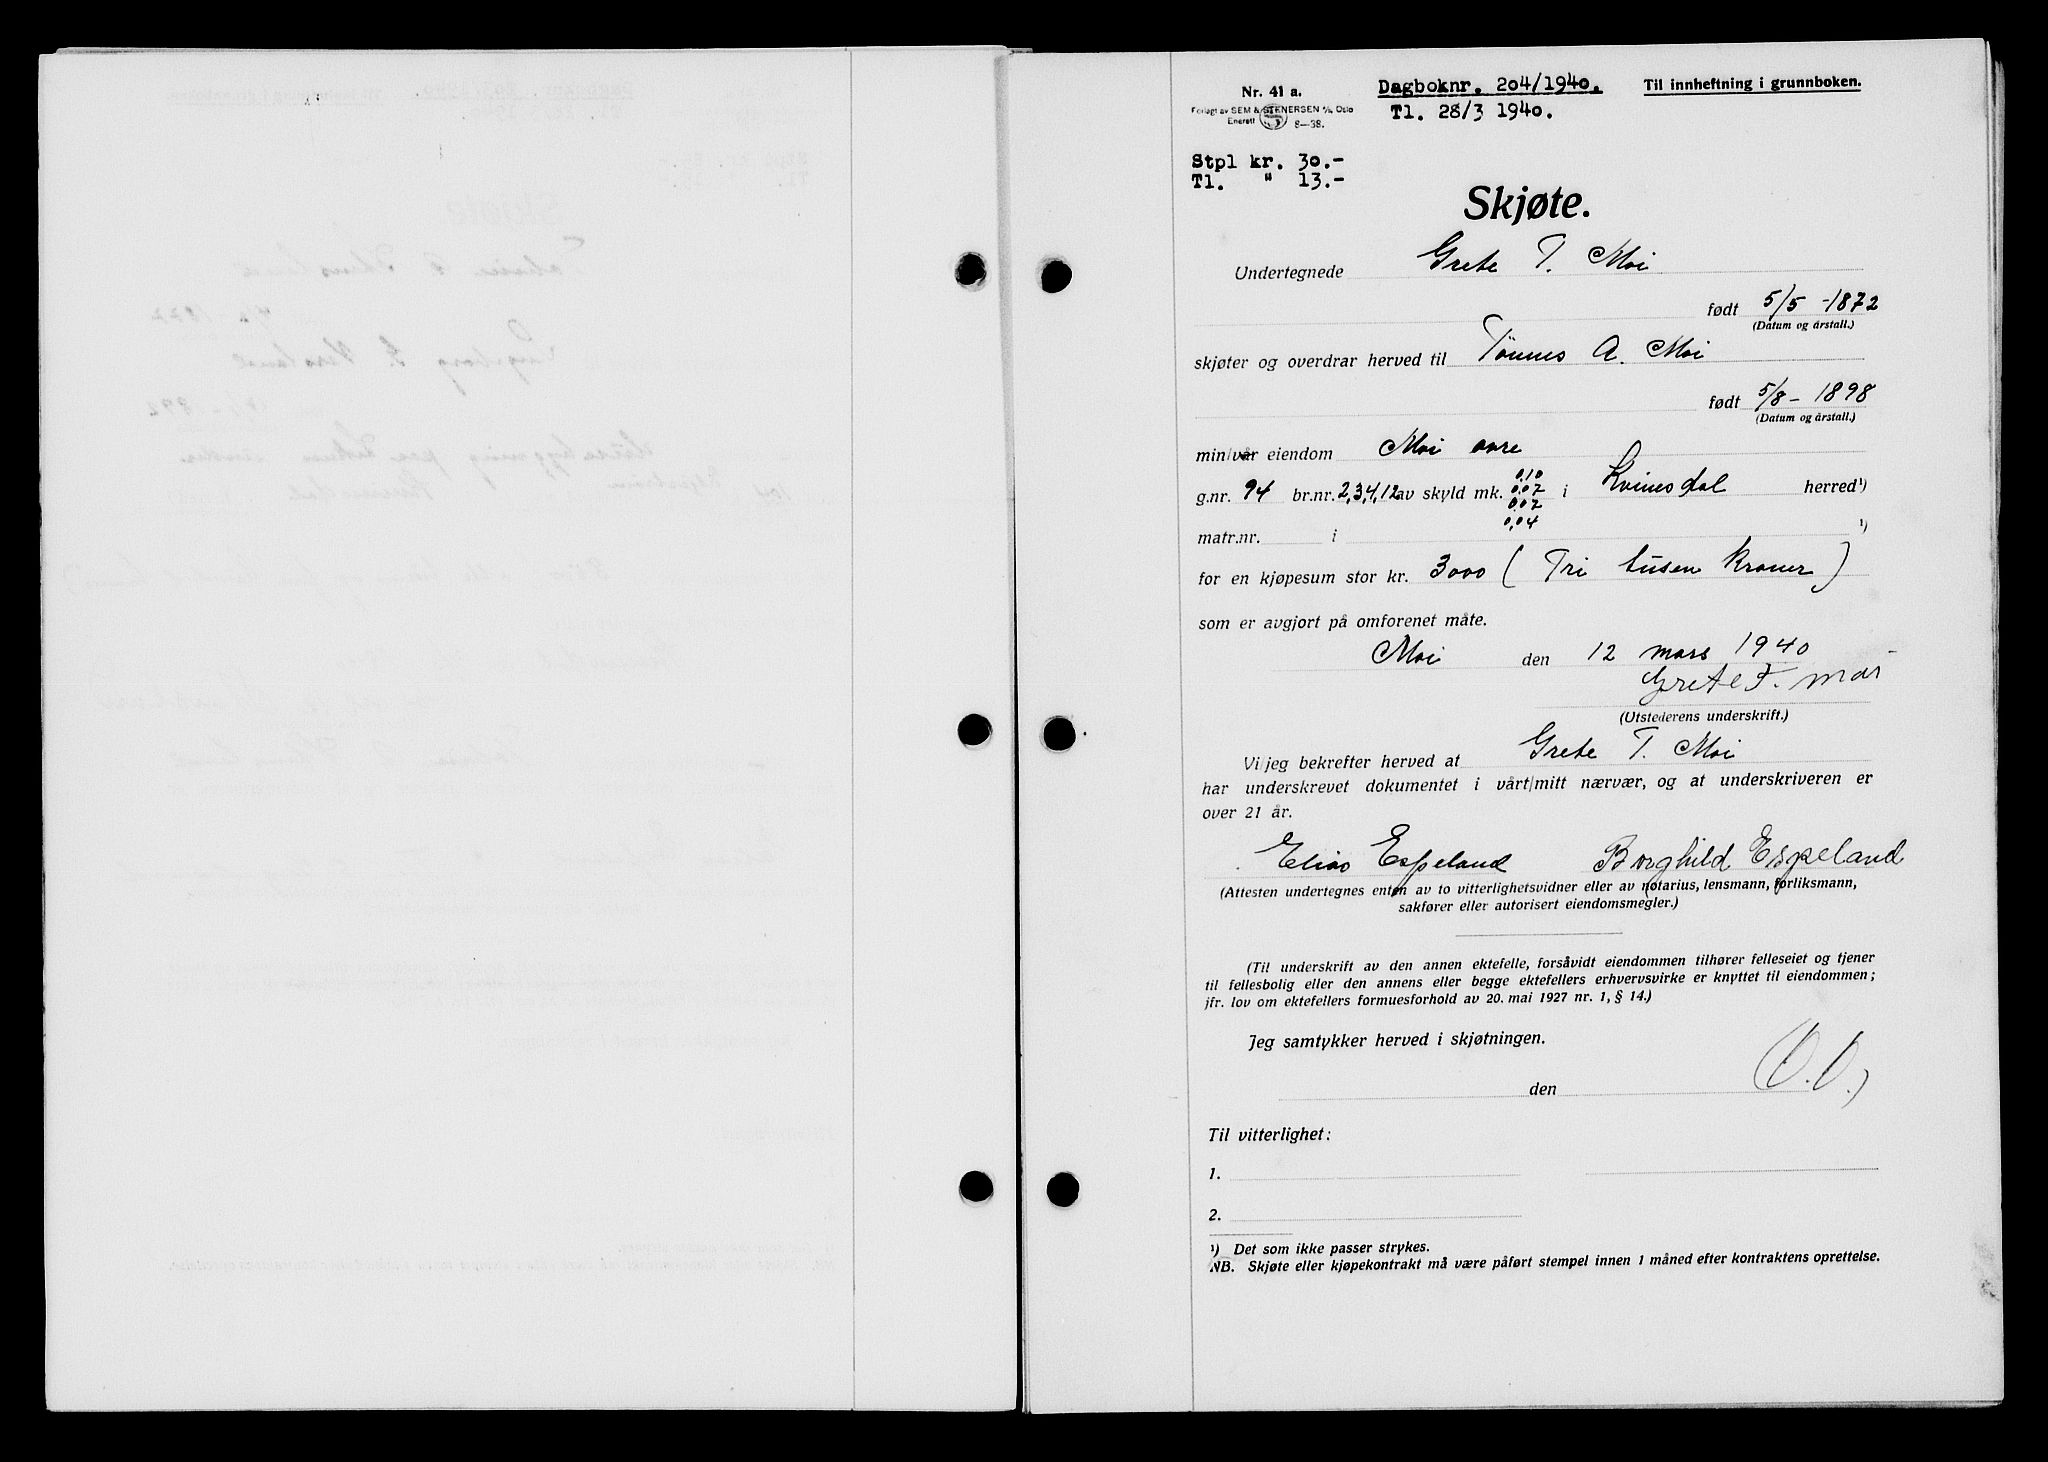 Nr. 41 a.
Forlagt av SEM & STENERSEN A/S, Oslo
Enerett 8—38.
Dagboknr. 204/1940.
Tl. 28/3 1940.
Til innheftning i grunnboken.
Stpl kr. 30.-
Tl. " 13.-
Skjøte.
Undertegnede Grete T. Moi
født 5/5 - 1872
(Datum og årstall.)
skjøter og overdrar herved til Tönnes A. Moi
født 5/8 - 1898
(Datum og årstall.)
min/vår eiendom Moi øvre
g.nr. 94 br.nr. 2,3,4,12 av skyld mk. 0,10 0,07 0,07 0,04 i Kvinesdal herred¹)
matr.nr. i ¹)
for en kjøpesum stor kr. 3000 ( Tri tusen kroner )
som er avgjort på omforenet måte.
Moi den 12 mars 1940
Grete T. Moi
(Utstederens underskrift.)
Vi/jeg bekrefter herved at Grete T. Moi
har underskrevet dokumentet i vårt/mitt nærvær, og at underskriveren er
over 21 år.
Elias Espeland Borghild Espeland
(Attesten undertegnes enten av to vitterlighetsvidner eller av notarius, lensmann, forliksmann,
sakfører eller autorisert eiendomsmegler.)
(Til underskrift av den annen ektefelle, forsåvidt eiendommen tilhører felleseiet og tjener
til fellesbolig eller den annens eller begge ektefellers erhvervsvirke er knyttet til eiendommen;
jfr. lov om ektefellers formuesforhold av 20. mai 1927 nr. 1, § 14.)
Jeg samtykker herved i skjøtningen.
den
Til vitterlighet:
1.
2.
¹) Det som ikke passer strykes.
NB. Skjøte eller kjøpekontrakt må være påført stempel innen 1 måned efter kontraktens oprettelse.